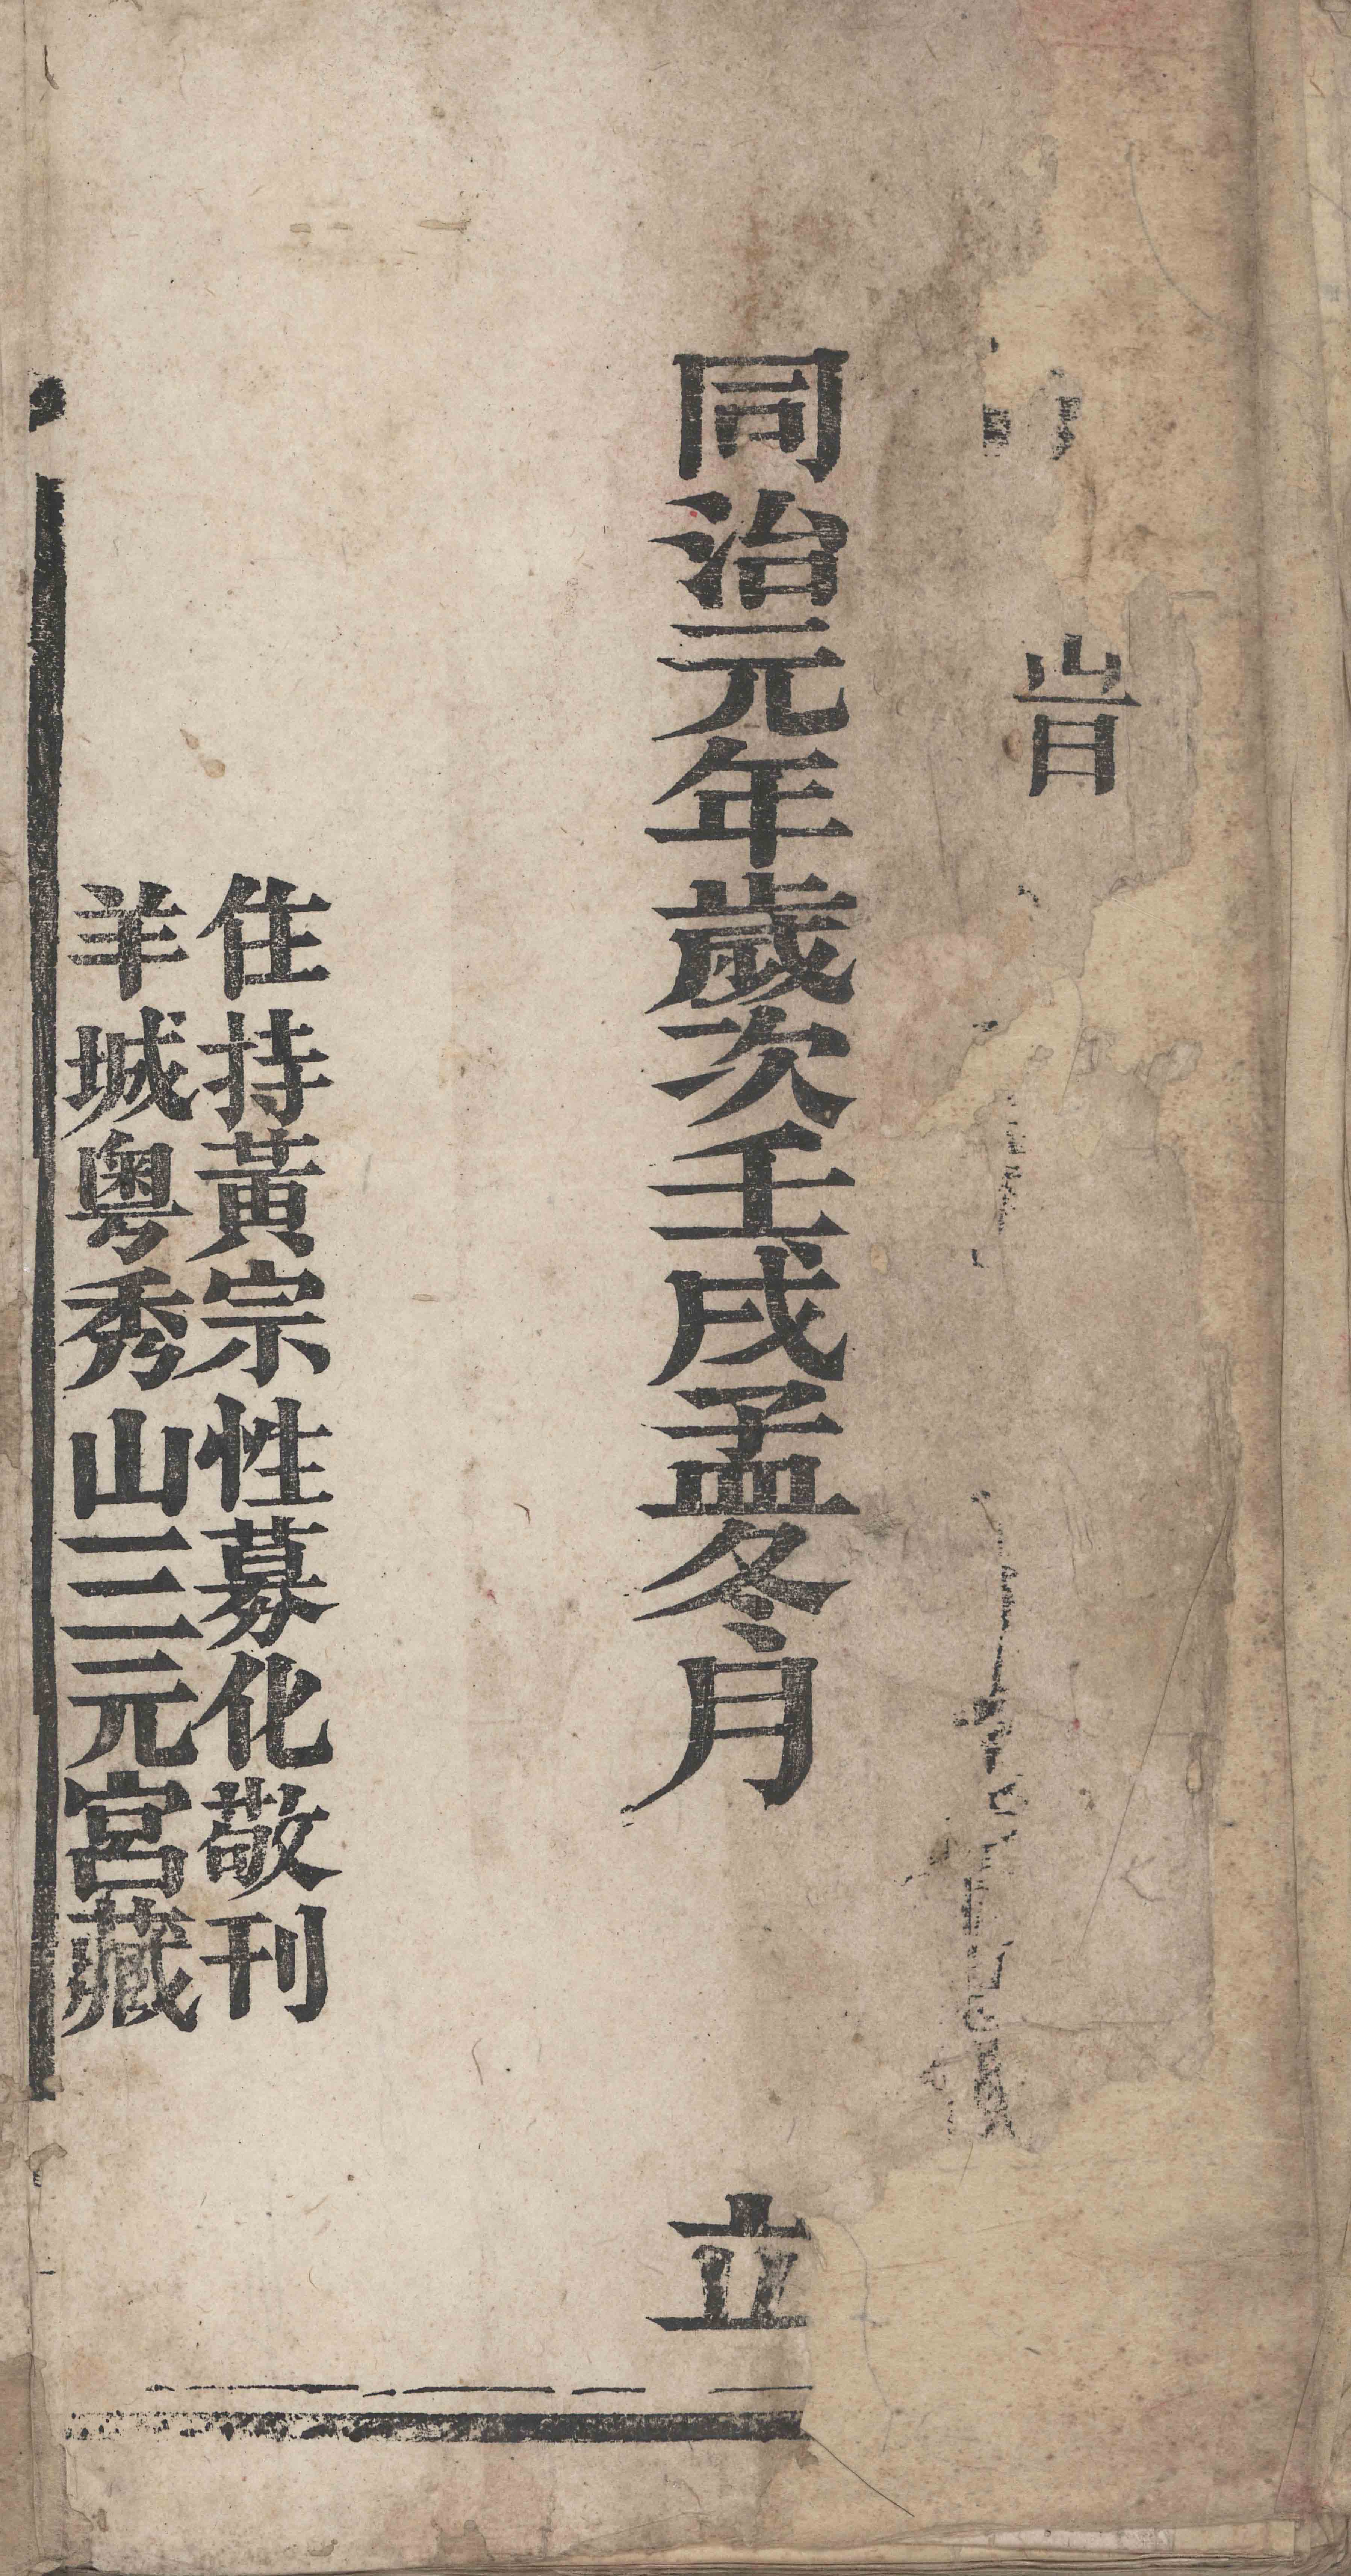 同治元年歲次壬戌孟冬月 立
住持黃宗性募化敬刊
羊城粵秀山三元宮藏